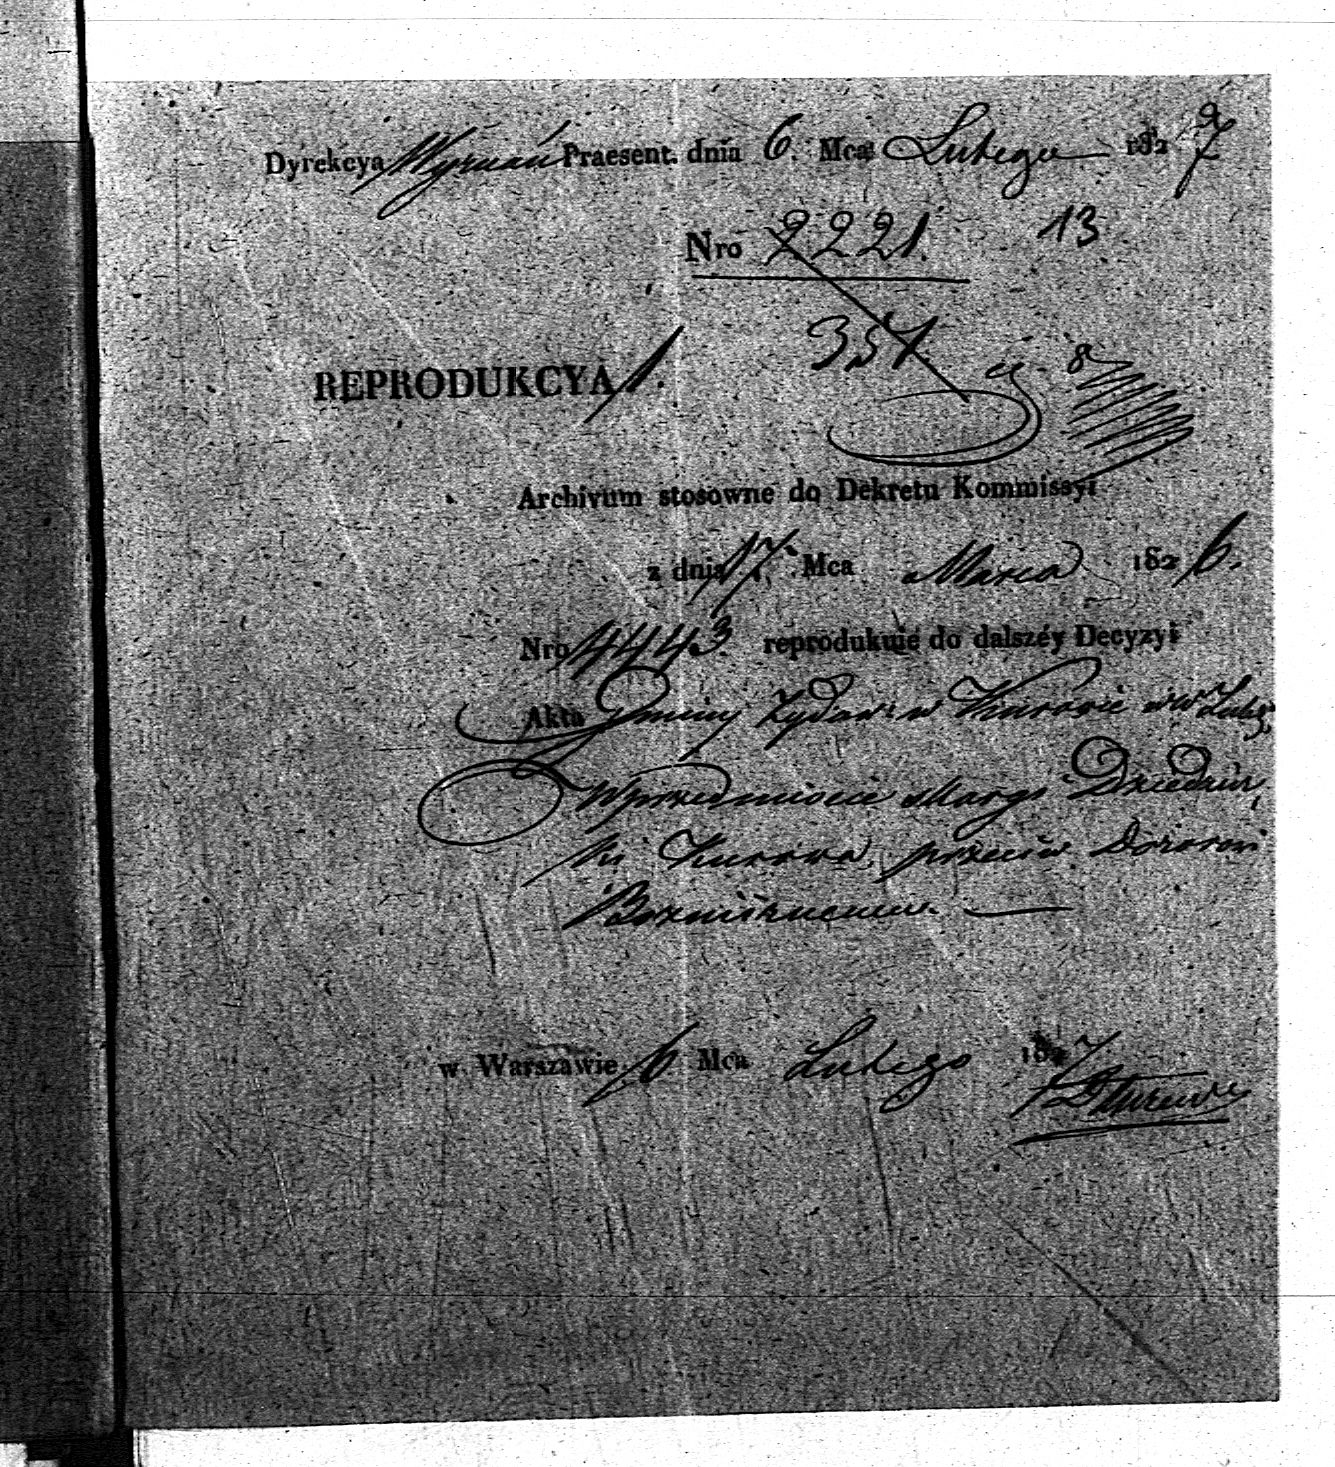 Dyrekcya Wyznań Praesent. dnia 6. Mca Lutego 1827
9
Nro 2221. 13
351.
REPRODUKCYA 1.
Archivum stosowne do Dekretu Kommissyi
z dnia 17. Mca Marca 1826.
Nro 4443 reprodukuie do dalszéy Decyzyi
Akta Gminy Żydow: w Kurowie w W Lubel:
W przedmiocie skargi Dziedzicz
ki Kurowa, przeciw Dozorowi
Bożnicznemu.
w Warszawie 6 Mca Lutego 1827